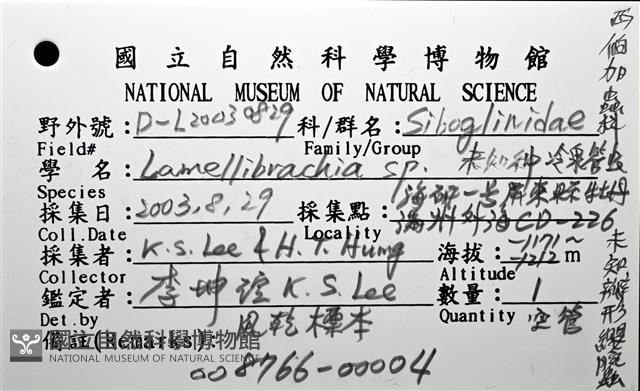 國立自然科學博物館
NATIONAL MUSEUM OF NATURAL SCIENCE
野外號: D-L20030829 科/群名: Siboglinidae
Field# Family/Group
學 名: Lamellibrachia sp. 未知種 冷泉管蟲
Species 海研一號 屏東縣牡丹
採集日: 2003,8,29 採集點: 滿州外海CD-226
Coll.Date Locality
採集者: K.S. Lee & H.T. Hung 海拔: -1171~-1212 m
Collector Altitude
鑑定者: 李坤瑄 K.S. Lee 數量: 1
Det.by 風乾標本 Quantity 空管
備註(Remarks):
008766-00004
西伯加蟲科 未知瓣形鬚腕蟲
國立自然科學博物館
NATIONAL MUSEUM OF NATURAL SCIENCE